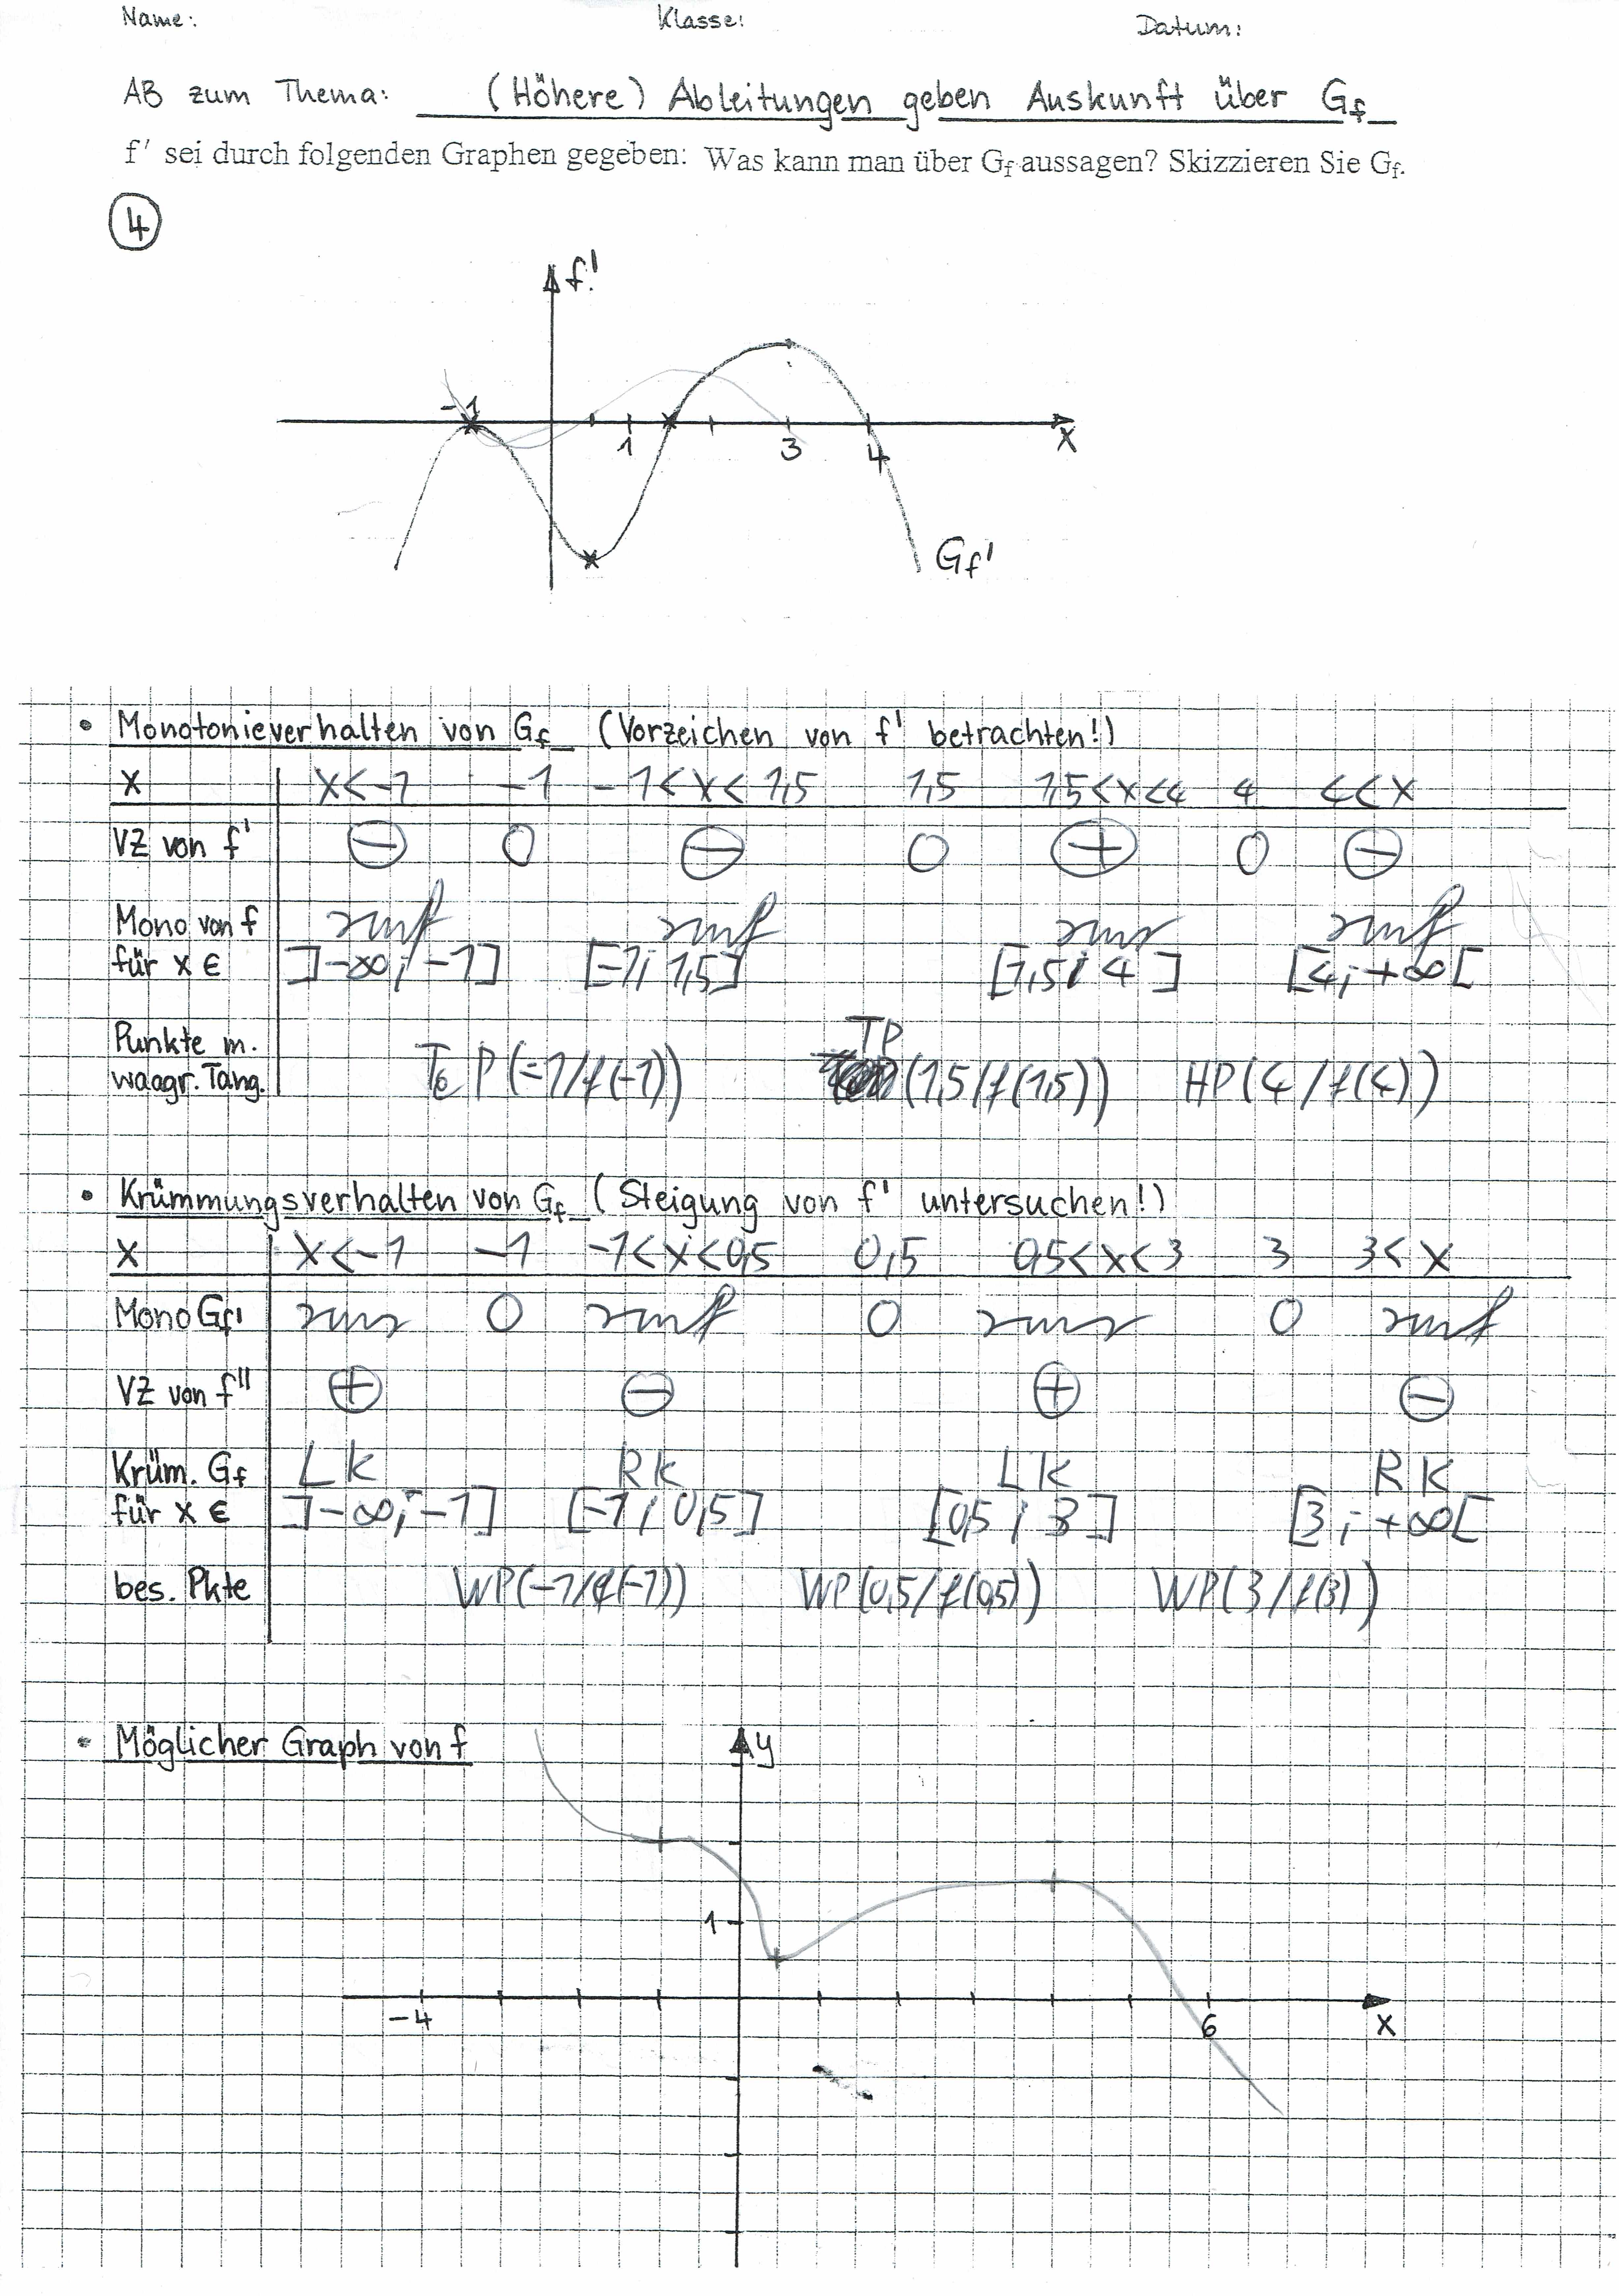 Name: Klasse: Datum:
AB zum Thema: (Höhere) Ableitungen geben Auskunft über Gf
f' sei durch folgenden Graphen gegeben: Was kann man über Gf aussagen? Skizzieren Sie Gf.
4
f'
-1 1 3 4 x
Gf'
• Monotonieverhalten von Gf (Vorzeichen von f' betrachten!)
x x<-1 -1 -1<x<1,5 1,5 1,5<x<4 4 4<x
VZ von f' ⊖ 0 ⊖ 0 ⊕ 0 ⊖
Mono von f smf smf sms smf
für x ∈ ]-∞;-1] [-1;1,5] [1,5;4] [4;+∞[
Punkte m. TP
waagr. Tang. TeP(-1/f(-1)) (1,5/f(1,5)) HP(4/f(4))
• Krümmungsverhalten von Gf (Steigung von f' untersuchen!)
x x<-1 -1 -1<x<0,5 0,5 0,5<x<3 3 3<x
Mono Gf' sms 0 smf 0 sms 0 smf
VZ von f'' ⊕ ⊖ ⊕ ⊖
Krüm. Gf LK RK LK RK
für x ∈ ]-∞;-1] [-1;0,5] [0,5;3] [3;+∞[
bes. Pkte WP(-1/f(-1)) WP(0,5/f(0,5)) WP(3/f(3))
• Möglicher Graph von f
y
1
-4 6 x